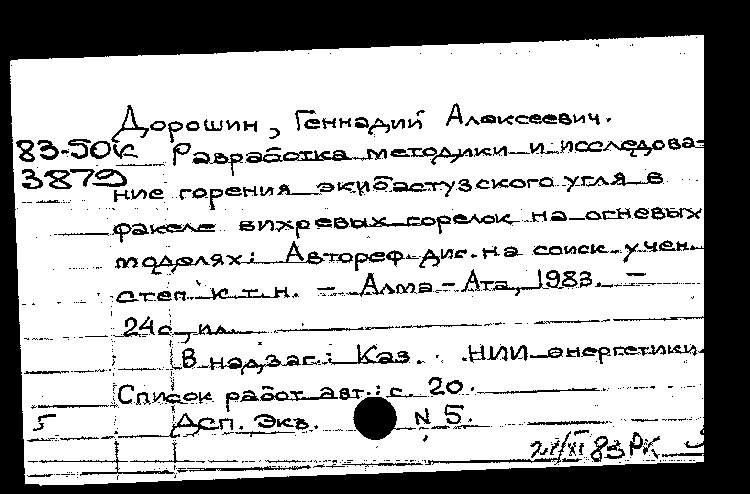 Дорошин, Геннадий Алексеевич.
83-50к Разработка методики и исследова-
3879
ние горения экибастузского угля в
факеле вихревых горелок на огневых
моделях: Автореф. дис. на соиск. учен.
степ. к.т.н. - Алма-Ата, 1983. -
24с., ил.
В надзаг.: Каз. НИИ энергетики.
Список работ авт.: с. 20.
5 Дсп. Экз. N 5.
83 РК